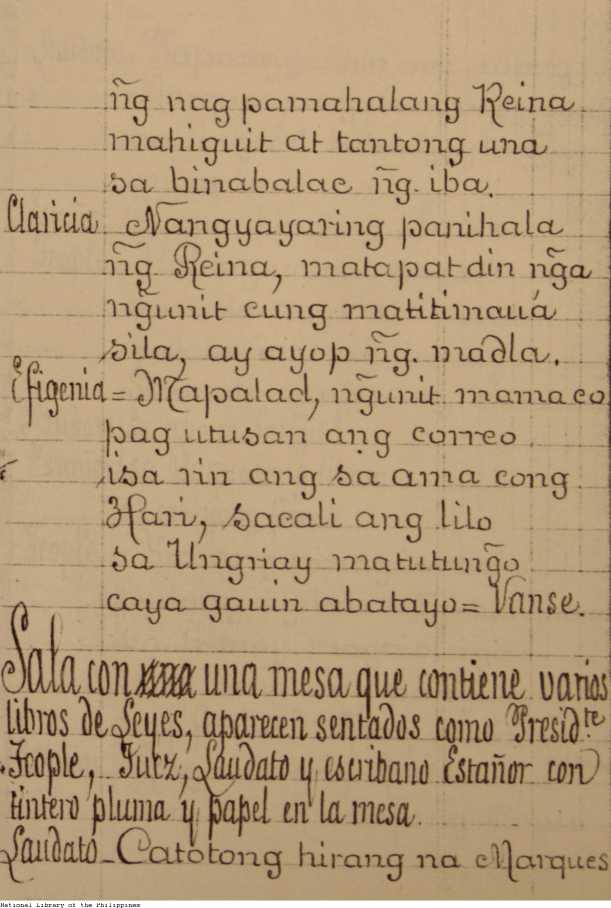 ñg nag pamahalang Reina
mahiguit at tantong una
sa binabalac ñg. iba.
Claricia. Nangyayaring panihala
ñg. Reina, matapat din ng̃a
ng̃unit cung matitimauá
sila, ay ayop ñg. madla.
Efigenia = Mapalad, ng̃unit mama co
pag utusan ang correo
isa rin ang sa ama cong
Hari, sacali ang lilo
sa Ungriay matutung̃o
caya gauin abatayo = Vanse.
Sala con una mesa que contiene varios
libros de Leyes, aparecen sentados como Presidte
Fcople, Tutz, Laudato y escribano Estañor con
tintero pluma y papel en la mesa.
Laudato - Catotong hirang na Marques
National Library of the Philippines